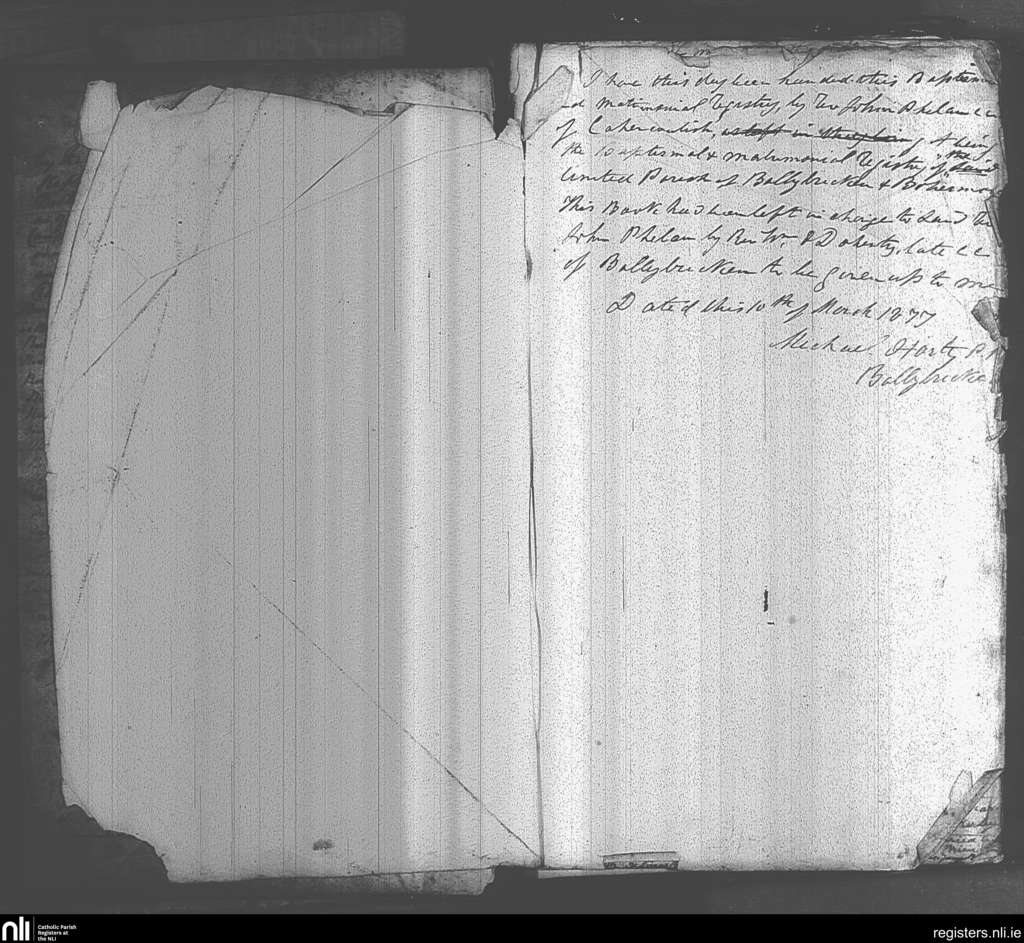 I have this day been handed this Baptism
nd matrimonial registry by Rev John Phelan CC
of Caherconlish, as left in the being it being
the Baptismal & matrimonial Registry of the
United Parish of Ballybricken & Bohermore
This Book had been left in charge to and the
John Phelan by Rev Wm O'Doherty, late CC
of Ballybricken to be given up to me
Dated this 10th of March 1877
Michael Harty P.P
Ballybricke
nli
Catholic Parish
Registers at
the NLI
registers.nli.ie